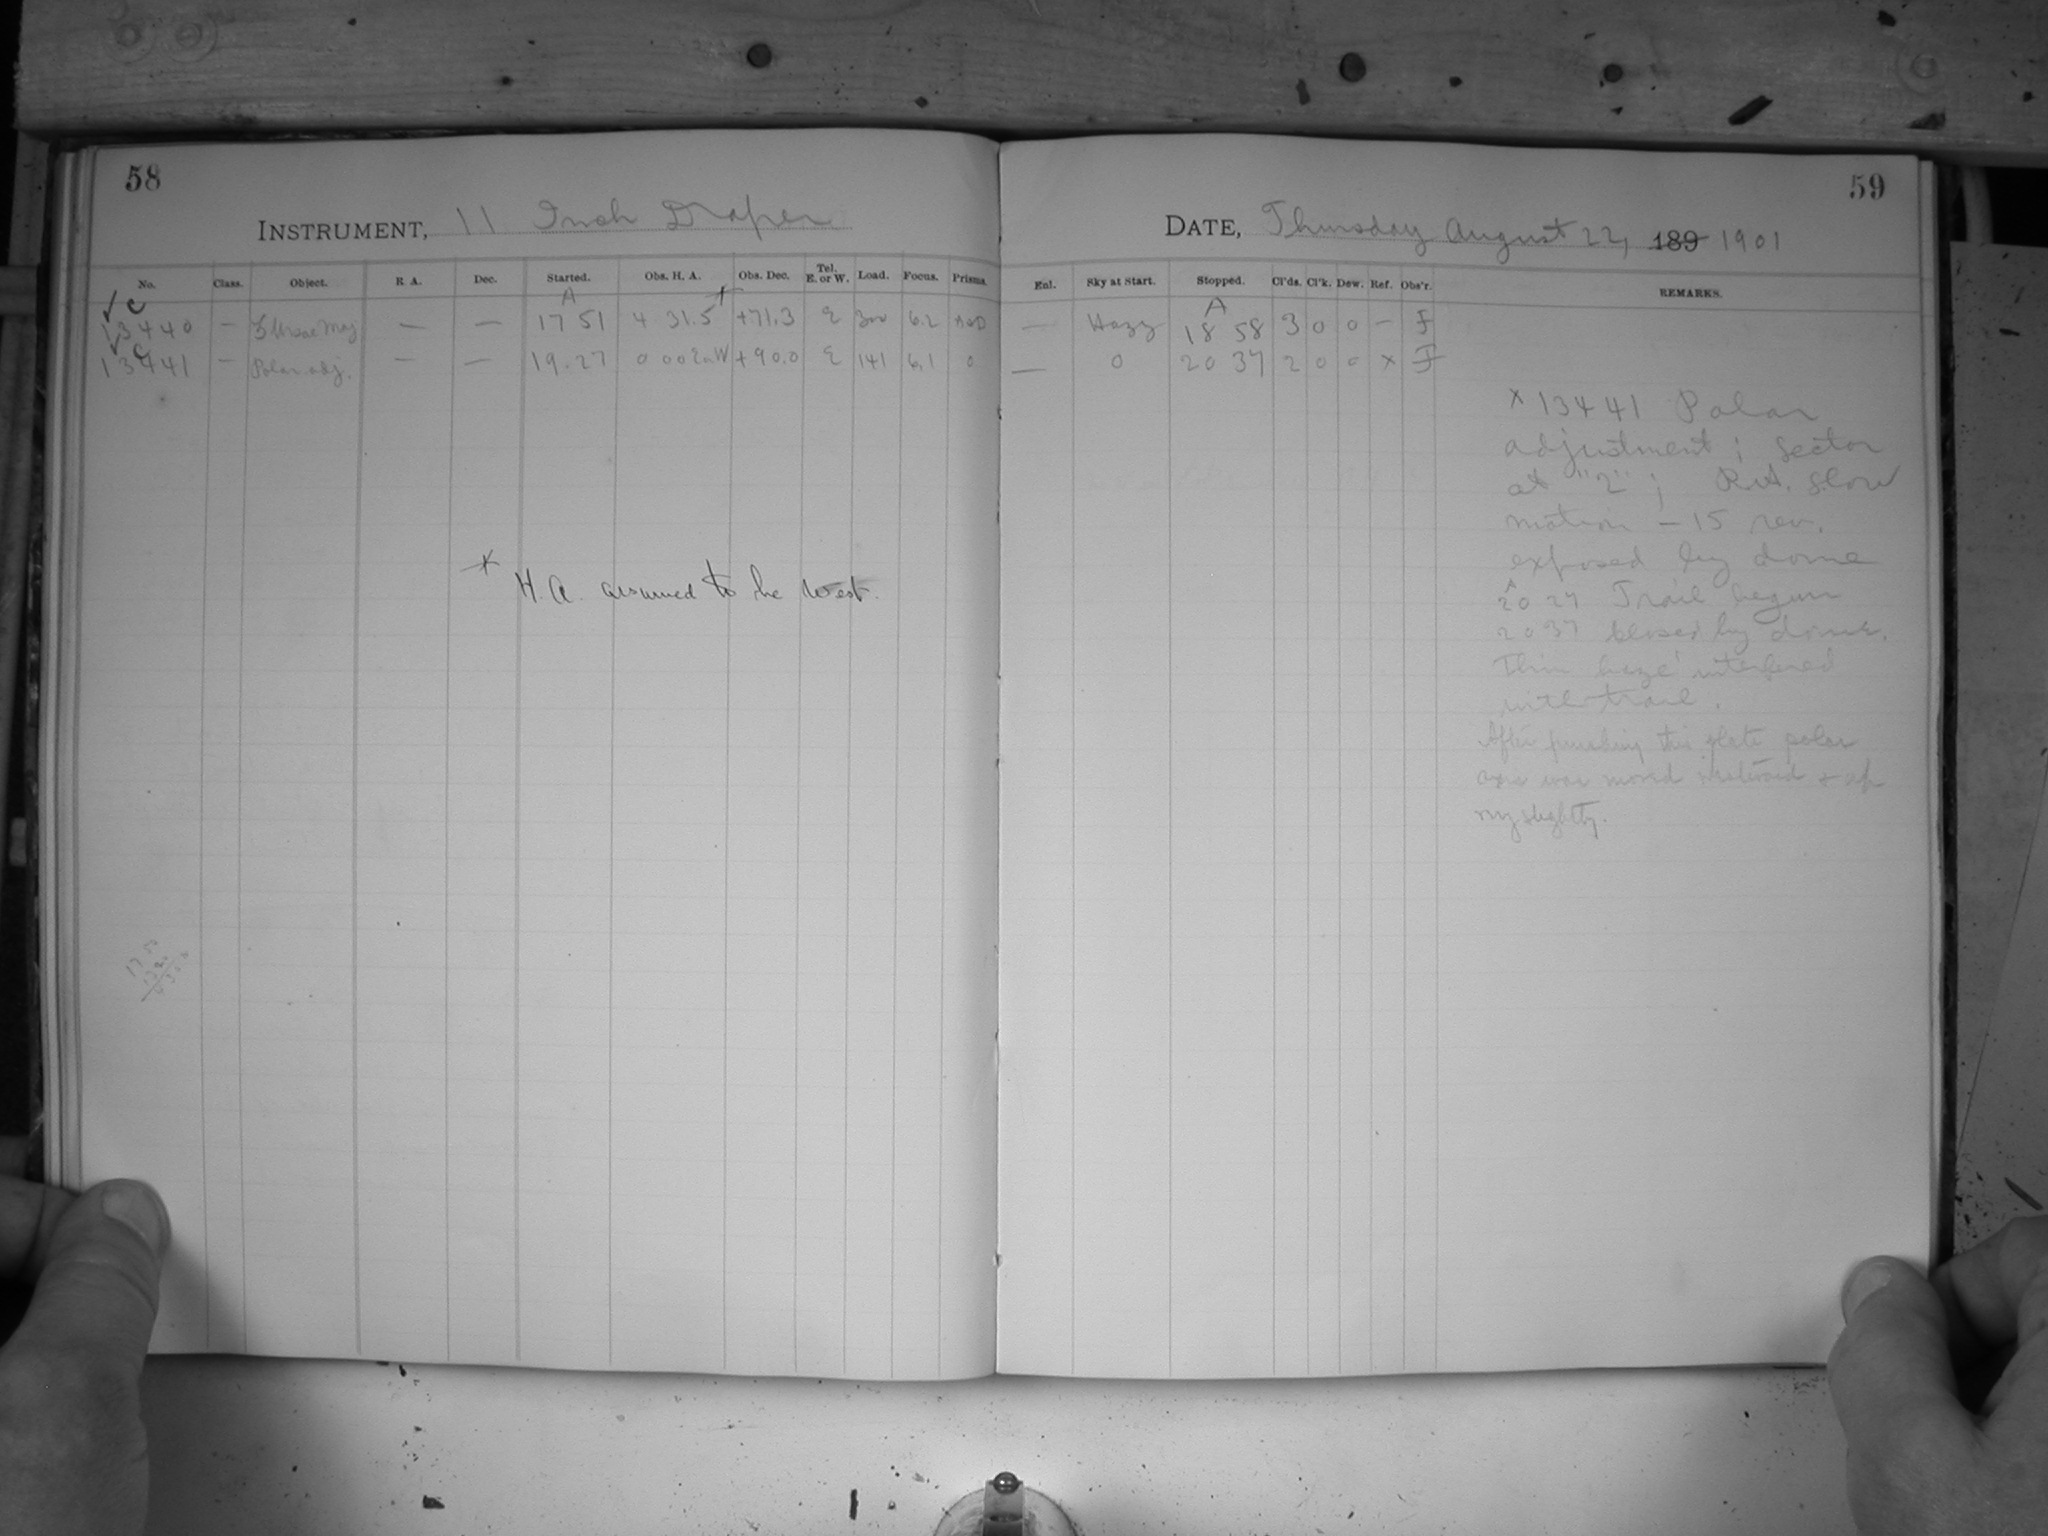 58
INSTRUMENT, 11 Inch Draper
No. Class. Object. R A. Dec. Started. Obs. H. A. Obs. Dec. Tel. E. or W. Load. Focus. Prisms.
✓ C A +
13440 — Ursae Maj — — 17 51 4 31.5 +71.3 E 300 6.2
✓ C
13441 — Polar adj. — — 19.27 0 00 E or W +90.0 E 141 6.1 0
* H. A. assumed to be West.
59
DATE, Thursday August 22, 189 1901
Enl. Sky at Start. Stopped. Cl'ds. Cl'k. Dew. Ref. Obs'r. REMARKS.
A
— Hazy 18 58 3 0 0 — F
— 0 20 37 2 0 0 x F
x 13441 Polar
adjustment; Sector
at "2"; R.A. slow
motion — 15 rev.
exposed by dome
A
20 27 Trail begun
20 37 closed by dome.
Thin haze interfered
with trail.
After finishing this plate polar
axis was moved westward & up
very slightly.